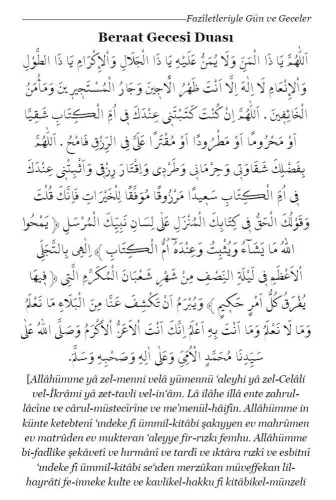 Fazîletleriyle Gün ve Geceler
Beraat Gecesi Duası
اَللّٰهُمَّ يَا ذَا الْمَنِّ وَلَا يُمَنُّ عَلَيْهِ يَا ذَا الْجَلَالِ وَالْاِكْرَامِ يَا ذَا الطَّوْلِ
وَالْاِنْعَامِ لَا اِلٰهَ اِلَّا اَنْتَ ظَهْرُ اللَّاجِينَ وَجَارُ الْمُسْتَجِيرِينَ وَمَأْمَنُ
الْخَائِفِينَ . اَللّٰهُمَّ اِنْ كُنْتَ كَتَبْتَنِي عِنْدَكَ فِي اُمِّ الْكِتَابِ شَقِيًّا
اَوْ مَحْرُومًا اَوْ مَطْرُودًا اَوْ مُقْتَرًا عَلَيَّ فِي الرِّزْقِ فَامْحُ . اَللّٰهُمَّ
بِفَضْلِكَ شَقَاوَتِي وَحِرْمَانِي وَطَرْدِي وَاِقْتَارَ رِزْقِي وَاَثْبِتْنِي عِنْدَكَ
فِي اُمِّ الْكِتَابِ سَعِيدًا مَرْزُوقًا مُوَفَّقًا لِلْخَيْرَاتِ فَاِنَّكَ قُلْتَ
وَقَوْلُكَ الْحَقُّ فِي كِتَابِكَ الْمُنْزَلِ عَلٰى لِسَانِ نَبِيِّكَ الْمُرْسَلِ ﴿ يَمْحُوا
اللّٰهُ مَا يَشَاءُ وَيُثْبِتُ وَعِنْدَهُ اُمُّ الْكِتَابِ ﴾ اِلٰهِي بِالتَّجَلِّي
الْاَعْظَمِ فِي لَيْلَةِ النِّصْفِ مِنْ شَهْرِ شَعْبَانَ الْمُكَرَّمِ الَّتِي ﴿ فِيهَا
يُفْرَقُ كُلُّ اَمْرٍ حَكِيمٍ ﴾ وَيُبْرَمُ اَنْ تَكْشِفَ عَنَّا مِنَ الْبَلَاءِ مَا نَعْلَمُ
وَمَا لَا نَعْلَمُ وَمَا اَنْتَ بِهِ اَعْلَمُ اِنَّكَ اَنْتَ الْاَعَزُّ الْاَكْرَمُ وَصَلَّى اللّٰهُ عَلٰى
سَيِّدِنَا مُحَمَّدٍ الْاُمِّيِّ وَعَلٰى اٰلِهِ وَصَحْبِهِ وَسَلَّمَ.
[Allâhümme yâ zel-menni velâ yümennü ‘aleyhi yâ zel-Celâli
vel-İkrâmi yâ zet-tavli vel-in‘âm. Lâ ilâhe illâ ente zahrul-
lâcîne ve cârul-müstecîrîne ve me’menül-hâifîn. Allâhümme in
künte ketebtenî ‘ındeke fî ümmil-kitâbi şakıyyen ev mahrûmen
ev matrûden ev mukteran ‘aleyye fir-rızkı femhu. Allâhümme
bi-fadlike şekâvetî ve hırmânî ve tardî ve ıktâra rızkî ve esbitnî
‘ındeke fî ümmil-kitâbi se‘îden merzûkan müveffekan lil-
hayrâti fe-inneke kulte ve kavlikel-hakku fî kitâbikel-münzeli